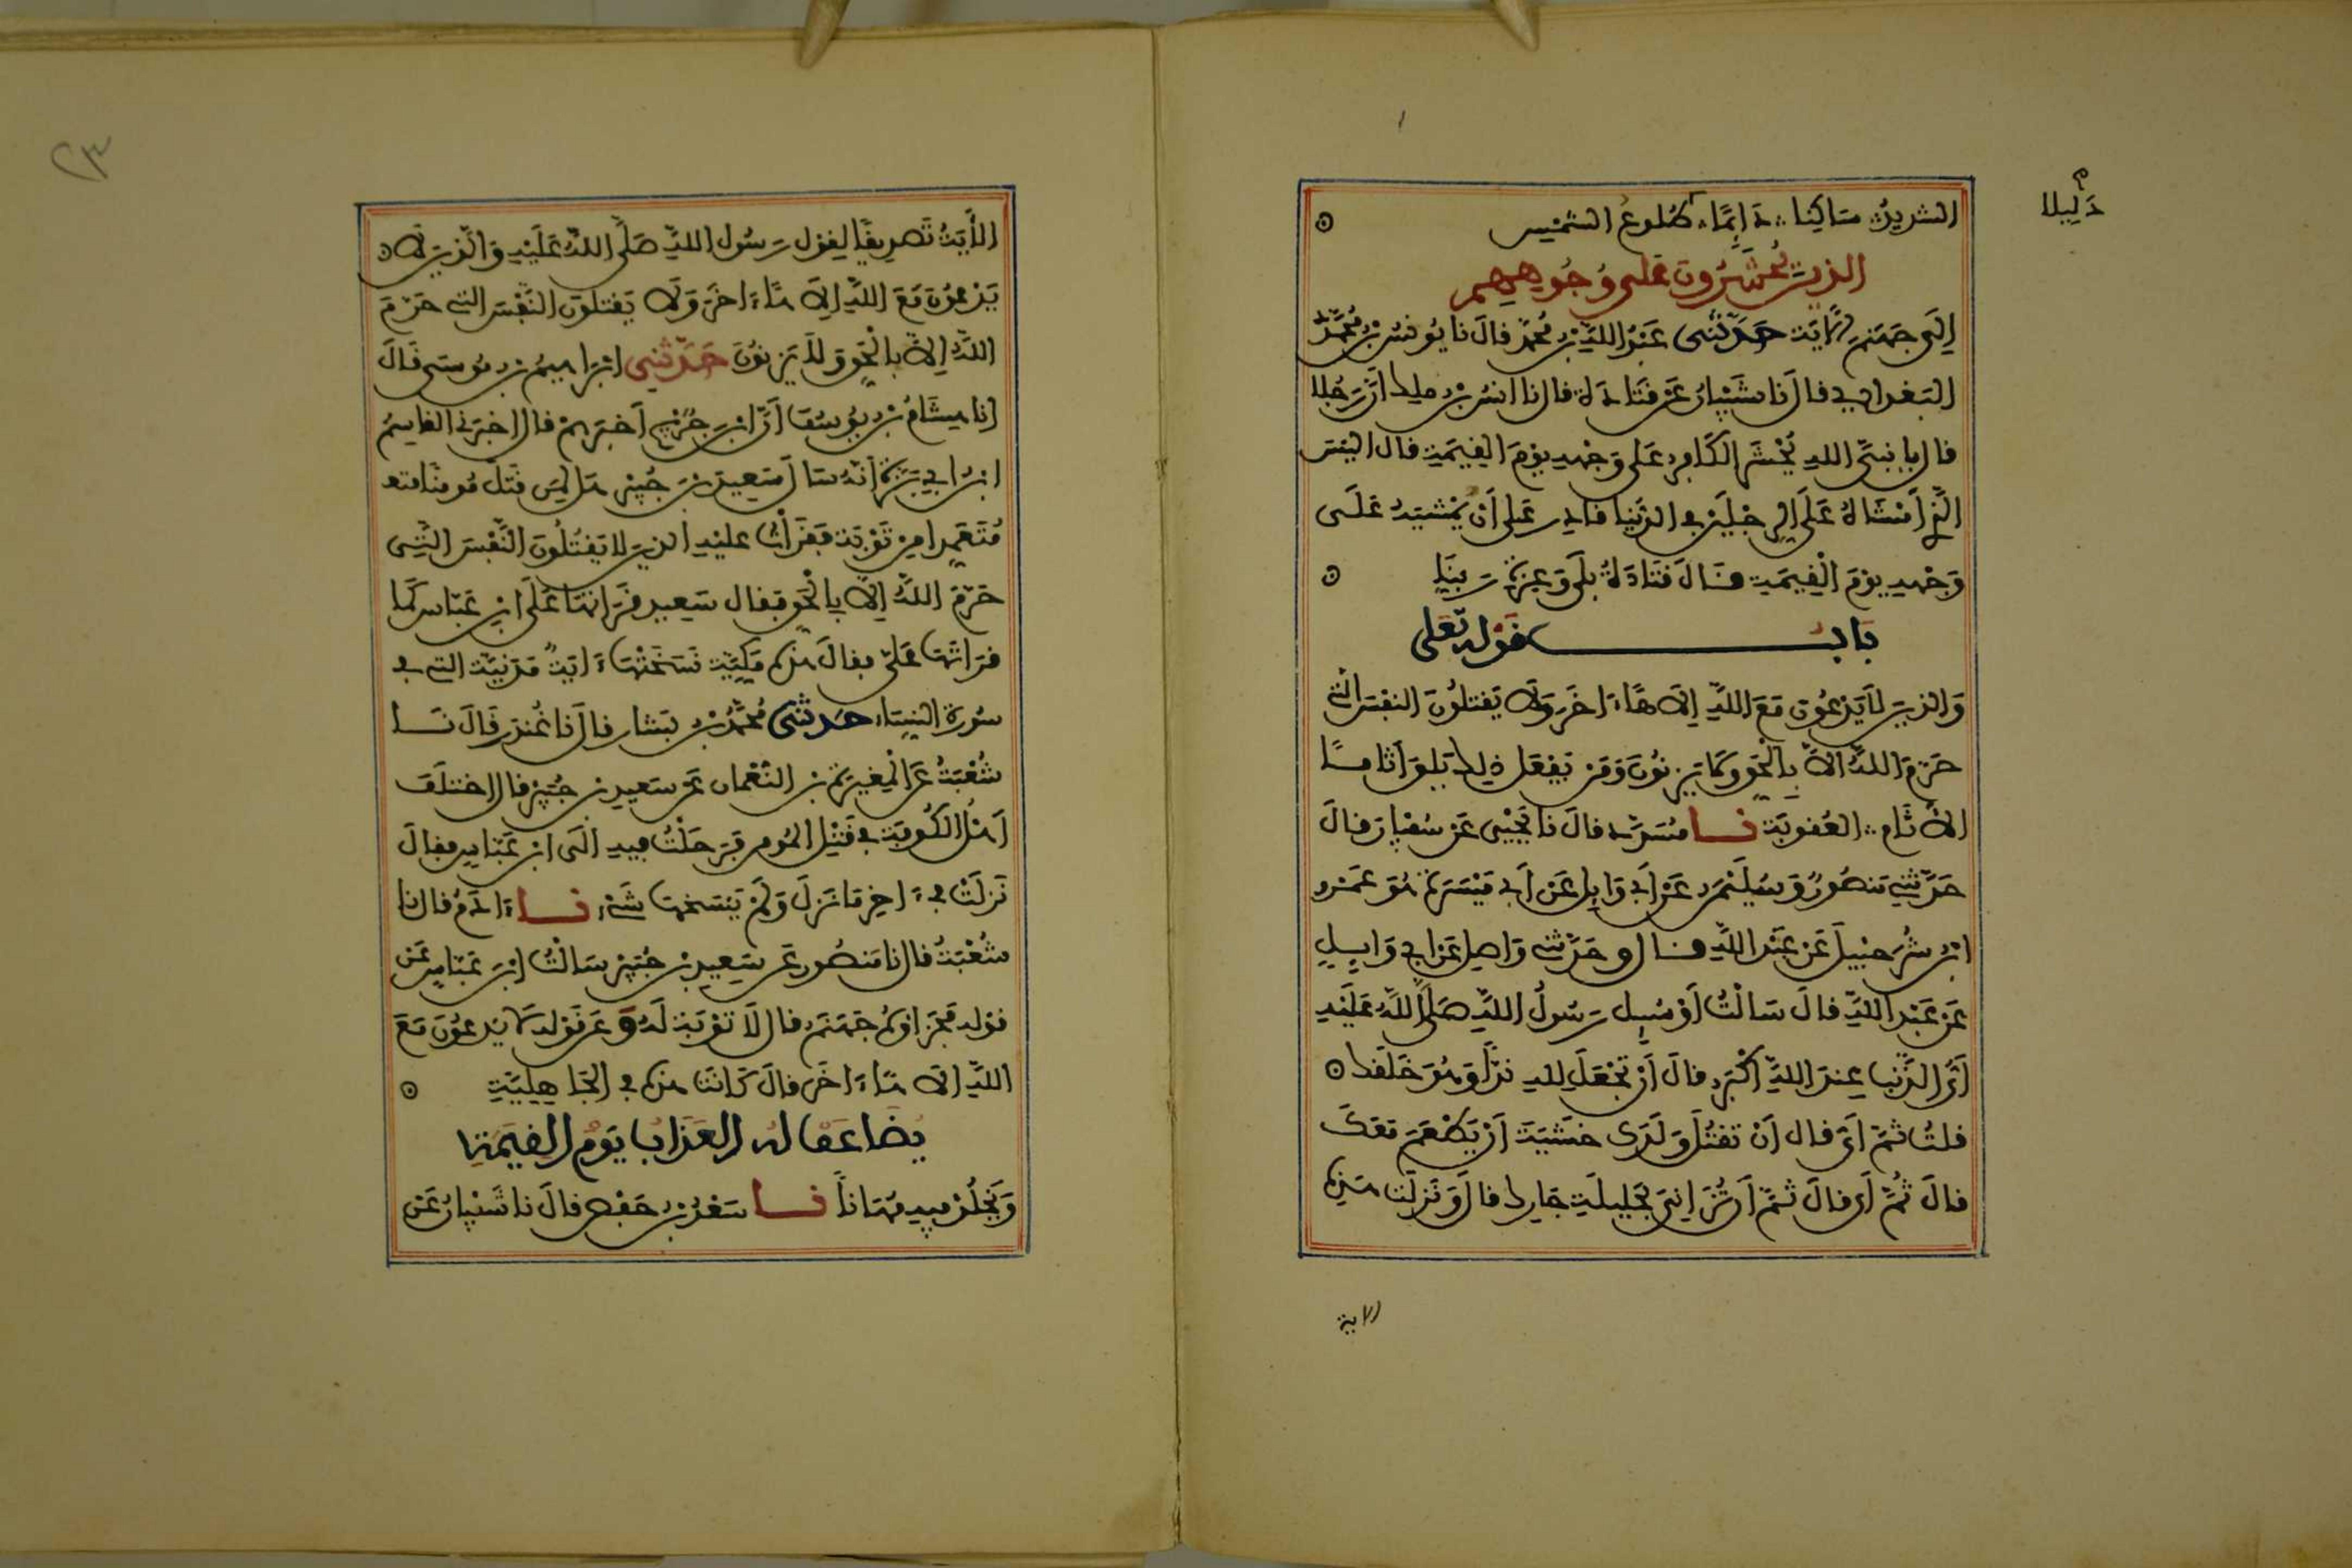 الشديدُ ساكنا دَائمًا طُلوعُ الشمس
دَليلا
الذين يُحْشَرُونَ على وُجُوههم
إلَى جَهَنَّمَ الآيَة حَدَّثَنى عَبْدُ اللَّهِ بْنُ مُحَمَّدٍ قالَ نا يُونسُ بْنُ مُحَمَّدٍ
البَغدادي قالَ نا شَيْبَانُ عَنْ قَتَادَةَ قال نا انسُ بْنُ ملِك أَنَّ رَجُلا
قال يا نبيَّ اللهِ يُحْشَرُ الكَافِر عَلى وَجْهِهِ يوْمَ القِيمَةِ قال اليْسَ
الَّذِي أَمْشَاهُ عَلَى الرِّجْلَيْنِ في الدُّنْيَا قادِر عَلى أَنْ يُمْشِيَهُ عَلَى
وَجْهِهِ يوْمَ الْقِيمَةِ قَالَ قَتَادَةُ بَلَى وَعِزَّةِ رَبِّنَا
بَابُ قَوْلِهِ تَعلى
وَالذين لَا يَدْعُونَ مَعَ اللَّهِ إِلَاهًا اخَرَ وَلَا يَقْتلُونَ النفْسَ التي
حَرَّمَ اللَّهُ الاَّ بِالْحَقِّ وَلَا يَزْنُونَ وَمَن يَّفْعَل ذلِك يَلْقَ أَثَامًا
الاَثَام العُقوبَة نا مُسَدَّد قالَ نا يَحْيَى عَنْ سُفْيَانَ قالَ
حَدَّثَنِي مَنصُورٌ وَسُلَيْمَنُ عَنْ أَبِي وَايِلٍ عَن أَبِي مَيْسَرَةَ هُوَ عَمْرو
ابْن شُرَحْبِيلَ عَن عَبْدِ اللَّهِ قال وحَدَّثَنِي وَاصِل عَن ابي وَايِلٍ
عَنْ عَبْدِ اللَّهِ قالَ سَالْتُ أَوْ سُيِل رَسُولُ اللَّهِ صَلَّى اللَّهُ عَلَيْهِ
أَيُّ الذَّنْبِ عِندَ اللَّهِ أكْبَر قالَ أَنْ تَجْعَلَ لِلهِ نِدًّا وَهُوَ خَلَقَك
قلتُ ثمَّ أيّ قال أنْ تَقْتُلَ وَلَدَكَ خَشْيَةَ أَنْ يَطْعَمَ مَعَكَ
قالَ ثُمَّ أَي قالَ ثمَّ أَنْ تُزَانِيَ بحَلِيلَةِ جَارِك قالَ وَنَزلَتْ هَذِهِ
الاية
٢٣
الأَيَةُ تَصْدِيقًا لِقوْل رَسُول اللَّهِ صَلَّى اللَّهُ عَلَيْهِ وَالَّذِينَ لَا
يَدْعونَ مَعَ اللَّهِ إِلَاهًا اخَرَ وَلَا يَقتلونَ النَّفْسَ التي حَرَّمَ
اللَّهُ إلاَّ بِالْحَقِّ وَلَا يَزنُونَ حَدَّثَنِي ابْرَاهِيمُ بْن مُوسَى قَالَ
انا هِشَامُ بْن يُوسُفَ أَنَّ ابْنَ جُرَيْجٍ أَخْبَرَهُمْ قال اخبَرَنِي القاسِمُ
ابْن ابي بَزَّةَ أنّهُ سَالَ سَعِيدَ بْنَ جُبَيْرٍ هَل لِمَن قَتَلَ مُومنًا
مُتَعَمِّدا مِن تَوْبَة فَقَرَأْتُ عليْهِ الذين لا يَقْتُلُونَ النَّفْسَ الَّتِي
حَرَّمَ اللَّهُ إلاَّ بِالْحَقِّ فقال سَعِيد قَرَاتهَا عَلَى ابْنِ عَبَّاسٍ كَمَا
قرَاتَهَا عَلَيَّ فقالَ هَذِهِ مَكِّيَّة نَسَخَتْهَا ءَايَةٌ مَدَنِيَّة التي في
سُورَة النِّسَاء حَدثنى مُحَمَّدُ بْن بَشَّار قالَ نا غُندَر قَالَ نَا
شُعْبَةُ عَن الْمُغِيرَةِ بْن النُّعْمَان عَن سَعِيدِ بْنِ جُبَيْرٍ قال اخْتَلَفَ
أَهْلُ الكُوفَة في قَتْلِ المُومِن فَرَحَلْتُ فيهِ الَى ابْنِ عَبَّاسٍ فقالَ
نَزلَتْ في ءَاخِرِ مَا نَزَلَ وَلَمْ يَنسَخهَا شَيْء نا ءَادَمُ قال نا
شُعْبَةُ قال نا مَنصُور عَن سَعِيدِ بْن جُبَيْرٍ سَالْتُ ابْنَ عَبَّاسٍ عَن
قوْلِهِ فَجَزَاؤهُ جَهَنَّم قال لَا تَوْبَةَ لَهُ وَعَن قَوْلِهِ لَا يَدْعُونَ مَعَ
اللَّهِ إِلَاهًا ءَاخَرَ قالَ كَانَتْ هَذِهِ في الجَاهِلِيَّةِ
يُضَاعَفُ لَهُ العَذَابُ يَوْمَ القِيَمَةِ
وَيَخْلُدْ فِيهِ مُهَانًا نا سَعْدُ بْن حَفْصٍ قالَ نا شَيْبَانُ عَن